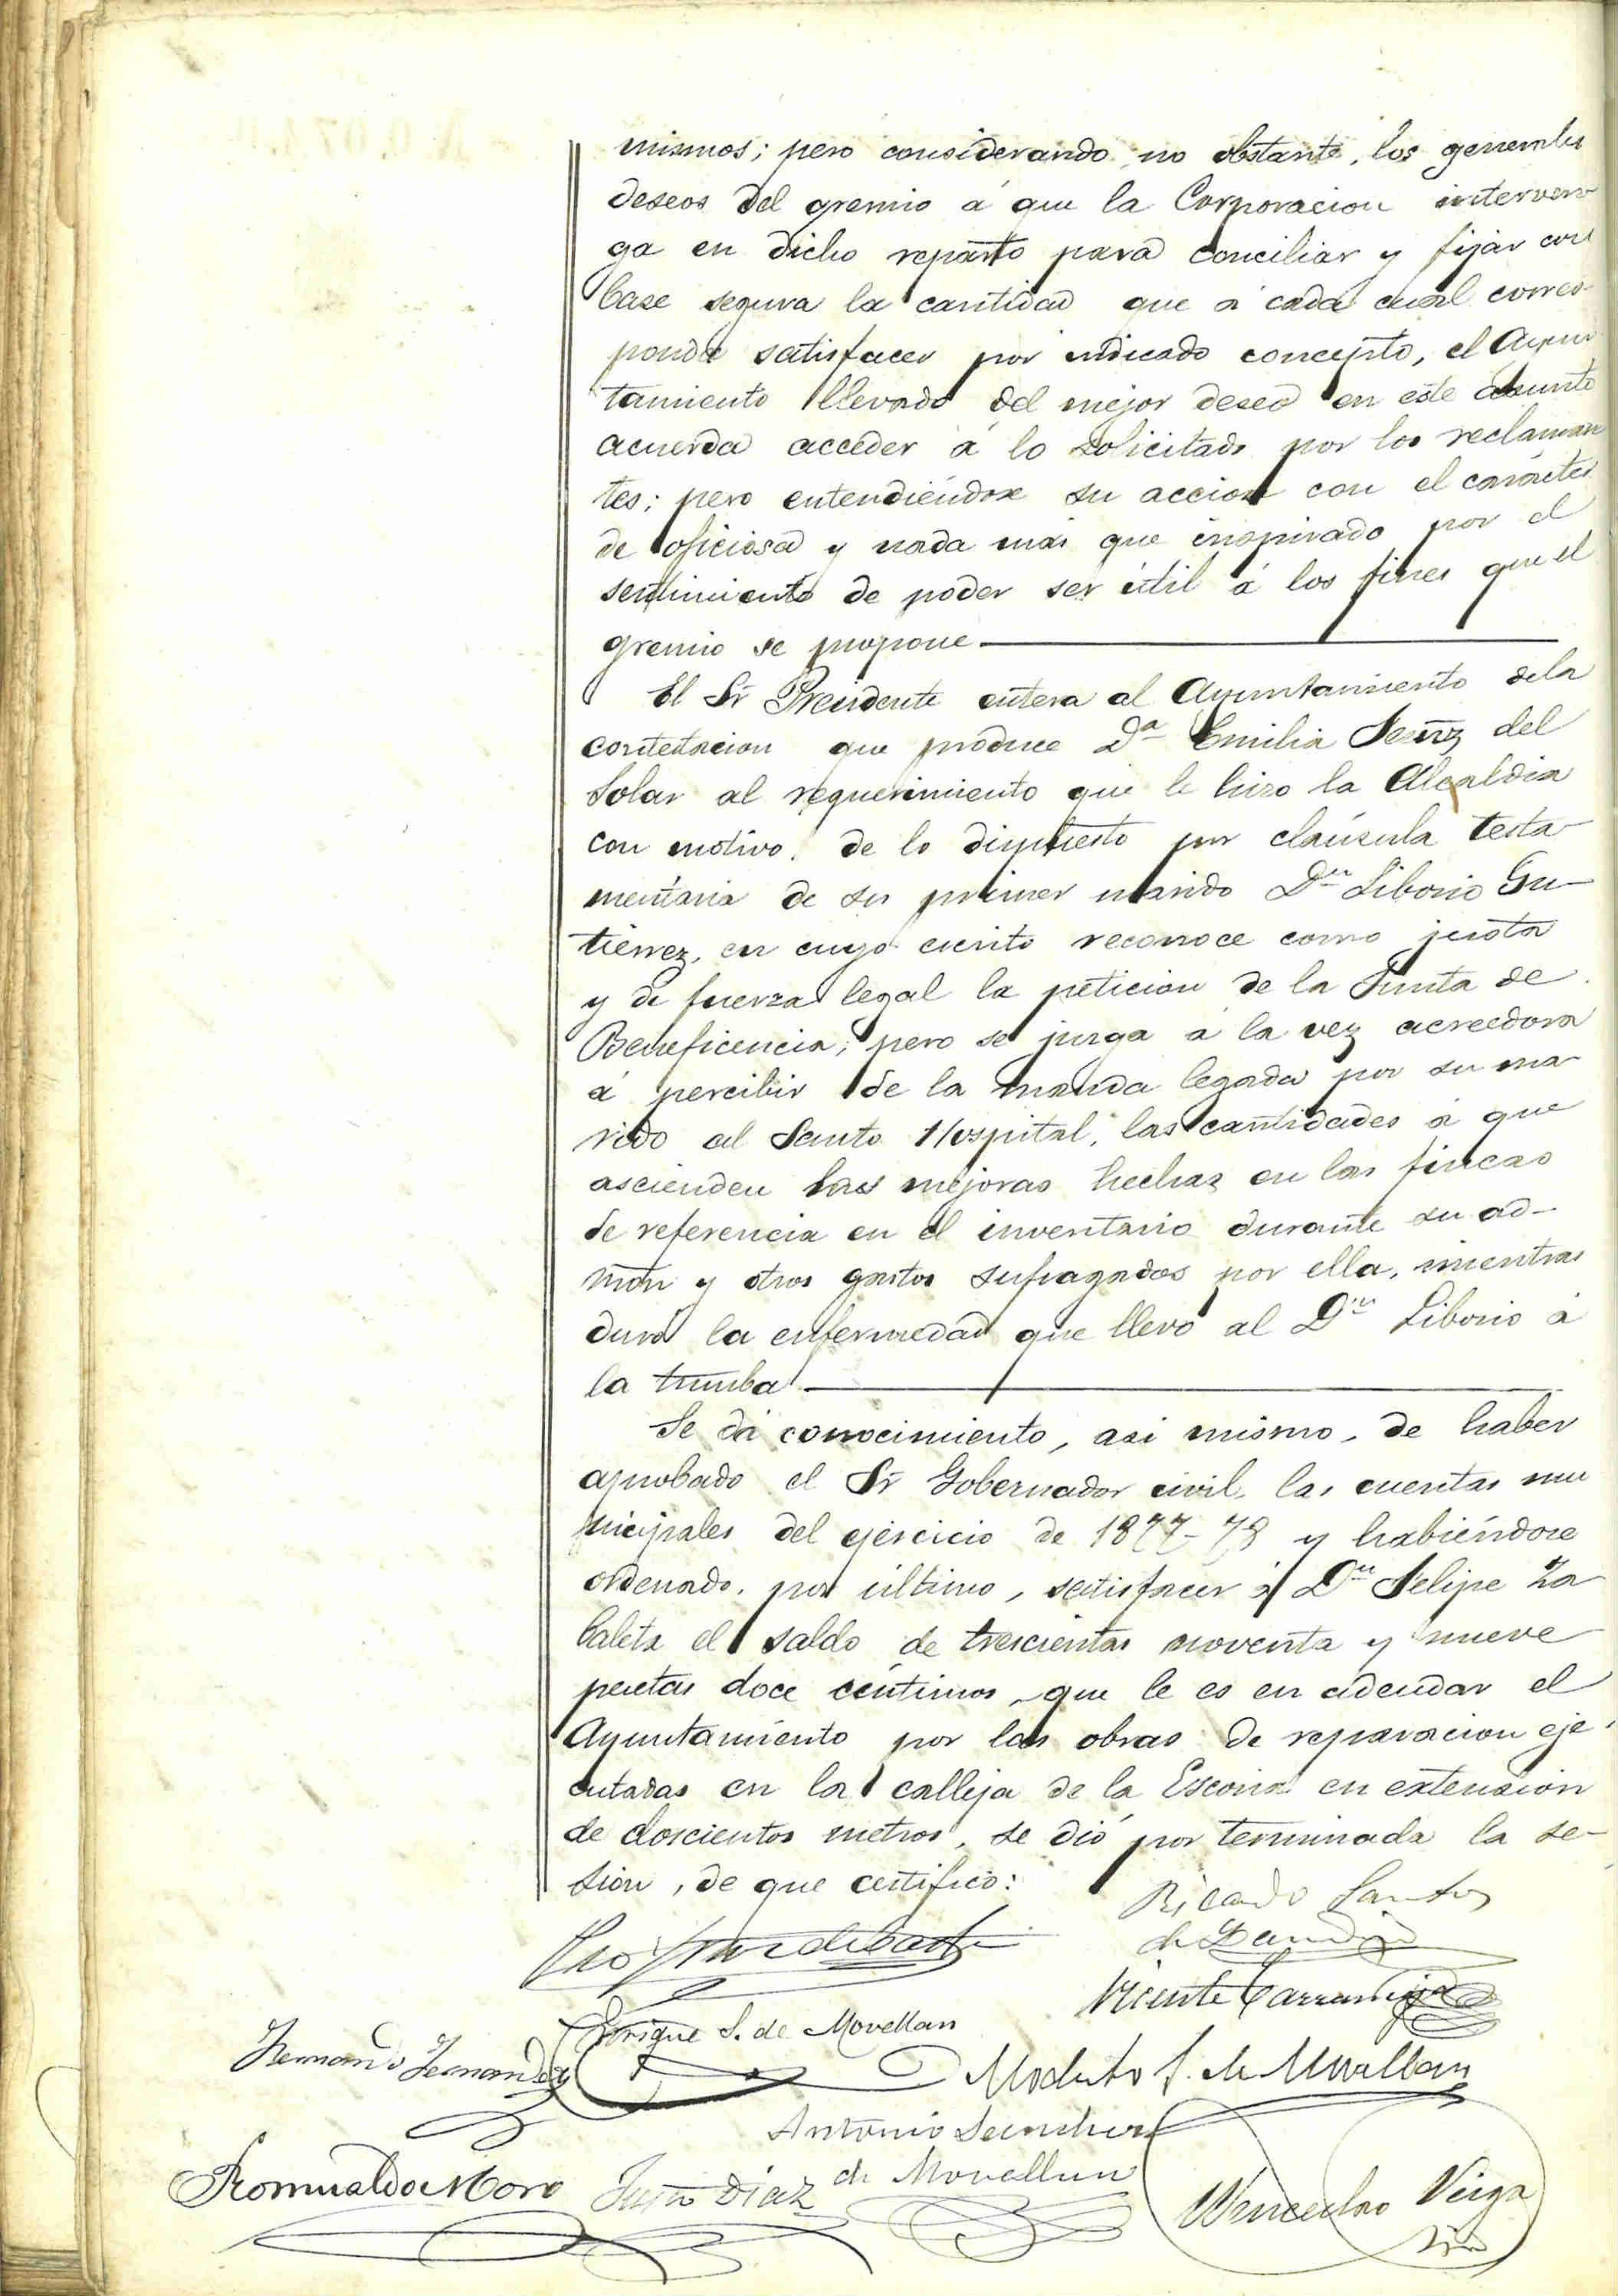 mismos; pero considerando, no obstante, los generales
deseos del gremio á que la Corporacion interven-
ga en dicho reparto para conciliar y fijar con
base segura la cantidad que á cada cual corres-
ponde satisfacer por indicado concepto, el Ayun
tamiento llevado del mejor deseo en este asunto
acuerda acceder á lo solicitado por los reclaman
tes; pero entendiéndose su accion con el carácter
de oficiosa y nada mas que inspirado por el
sentimiento de poder ser útil á los fines que el
gremio se propone
El Sr Presidente entera al Ayuntamiento dela
contestacion que produce Dª Emilia del
Solar al requerimiento que le hizo la Alcaldia
con motivo de lo dispuesto por claúsula testa-
mentaria de su primer marido Dn Liborio Gu-
tiérrez, en cuyo escrito reconoce como justa
y de fuerza legal la peticion de la Junta de
Beneficencia; pero se juzga á la vez acreedora
á percibir de la manda legada por su ma-
rido al Santo Hospital, las cantidades á que
ascienden las mejoras hechas en las fincas
de referencia en el inventario durante su ad-
món y otros gastos sufragados por ella, mientras
duró la enfermedad que llevó al Dn Liborio á
la tumba
Se dá conocimiento, asi mismo, de haber
aprobado el Sr Gobernador civil, las cuentas mu
nicipales del ejercicio de 1877-78 y habiéndose
ordenado, por último, satisfacer á Dn Felipe Za
baleta el saldo de trescientas noventa y nueve
pesetas doce céntimos, que le es en adeudar el
Ayuntamiento por las obras de reparacion eje-
cutadas en la calleja de la Escoria en extension
de doscientos metros, se dió por terminada la se-
sion, de que certifico:
Ricardo Santos
de
Vicente
Enrique S. de Movellan
Fernando Fernandez
Modesto S. de Movellan
Antonio Sanchez
de Movellan
Romualdo Moro
Justo Diaz
Wenceslao Veiga